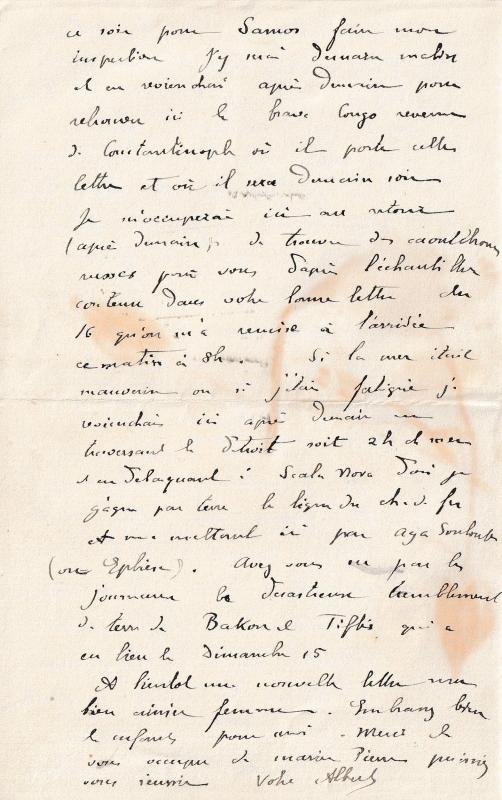 ce soir pour Samos faire mon
inspection J'y serai demain matin
et en reviendrai après demain pour
retrouver ici le brave Congo revenu
de Constantinople où il porte cette
lettre et où il sera demain soir
Je m'occuperai ici au retour
(après demain) de trouver des caoutchoucs
russes pour vous d'après l'échantillon
contenu dans votre bonne lettre du
16 qu'on m'a remise à l'arrivée
ce matin à 8h. Si la mer était
mauvaise ou si j'étais fatigué je
reviendrais ici après demain en
traversant le détroit soit 2h de mer
et en débarquant à Scala Nova d'où je
gagne par terre la ligne du ch. de fer
et me mettant ici par Aya Soulouk
(ou Ephèse). Avez vous vu par les
journaux le désastreux tremblement
de terre de Bakou et Tiflis qui a
eu lieu le Dimanche 15
A bientôt une nouvelle lettre ma
bien aimée femme. Embrassez bien
les enfants pour moi. Merci de
vous occuper de Pierre puissiez
vous réussir Votre Albert